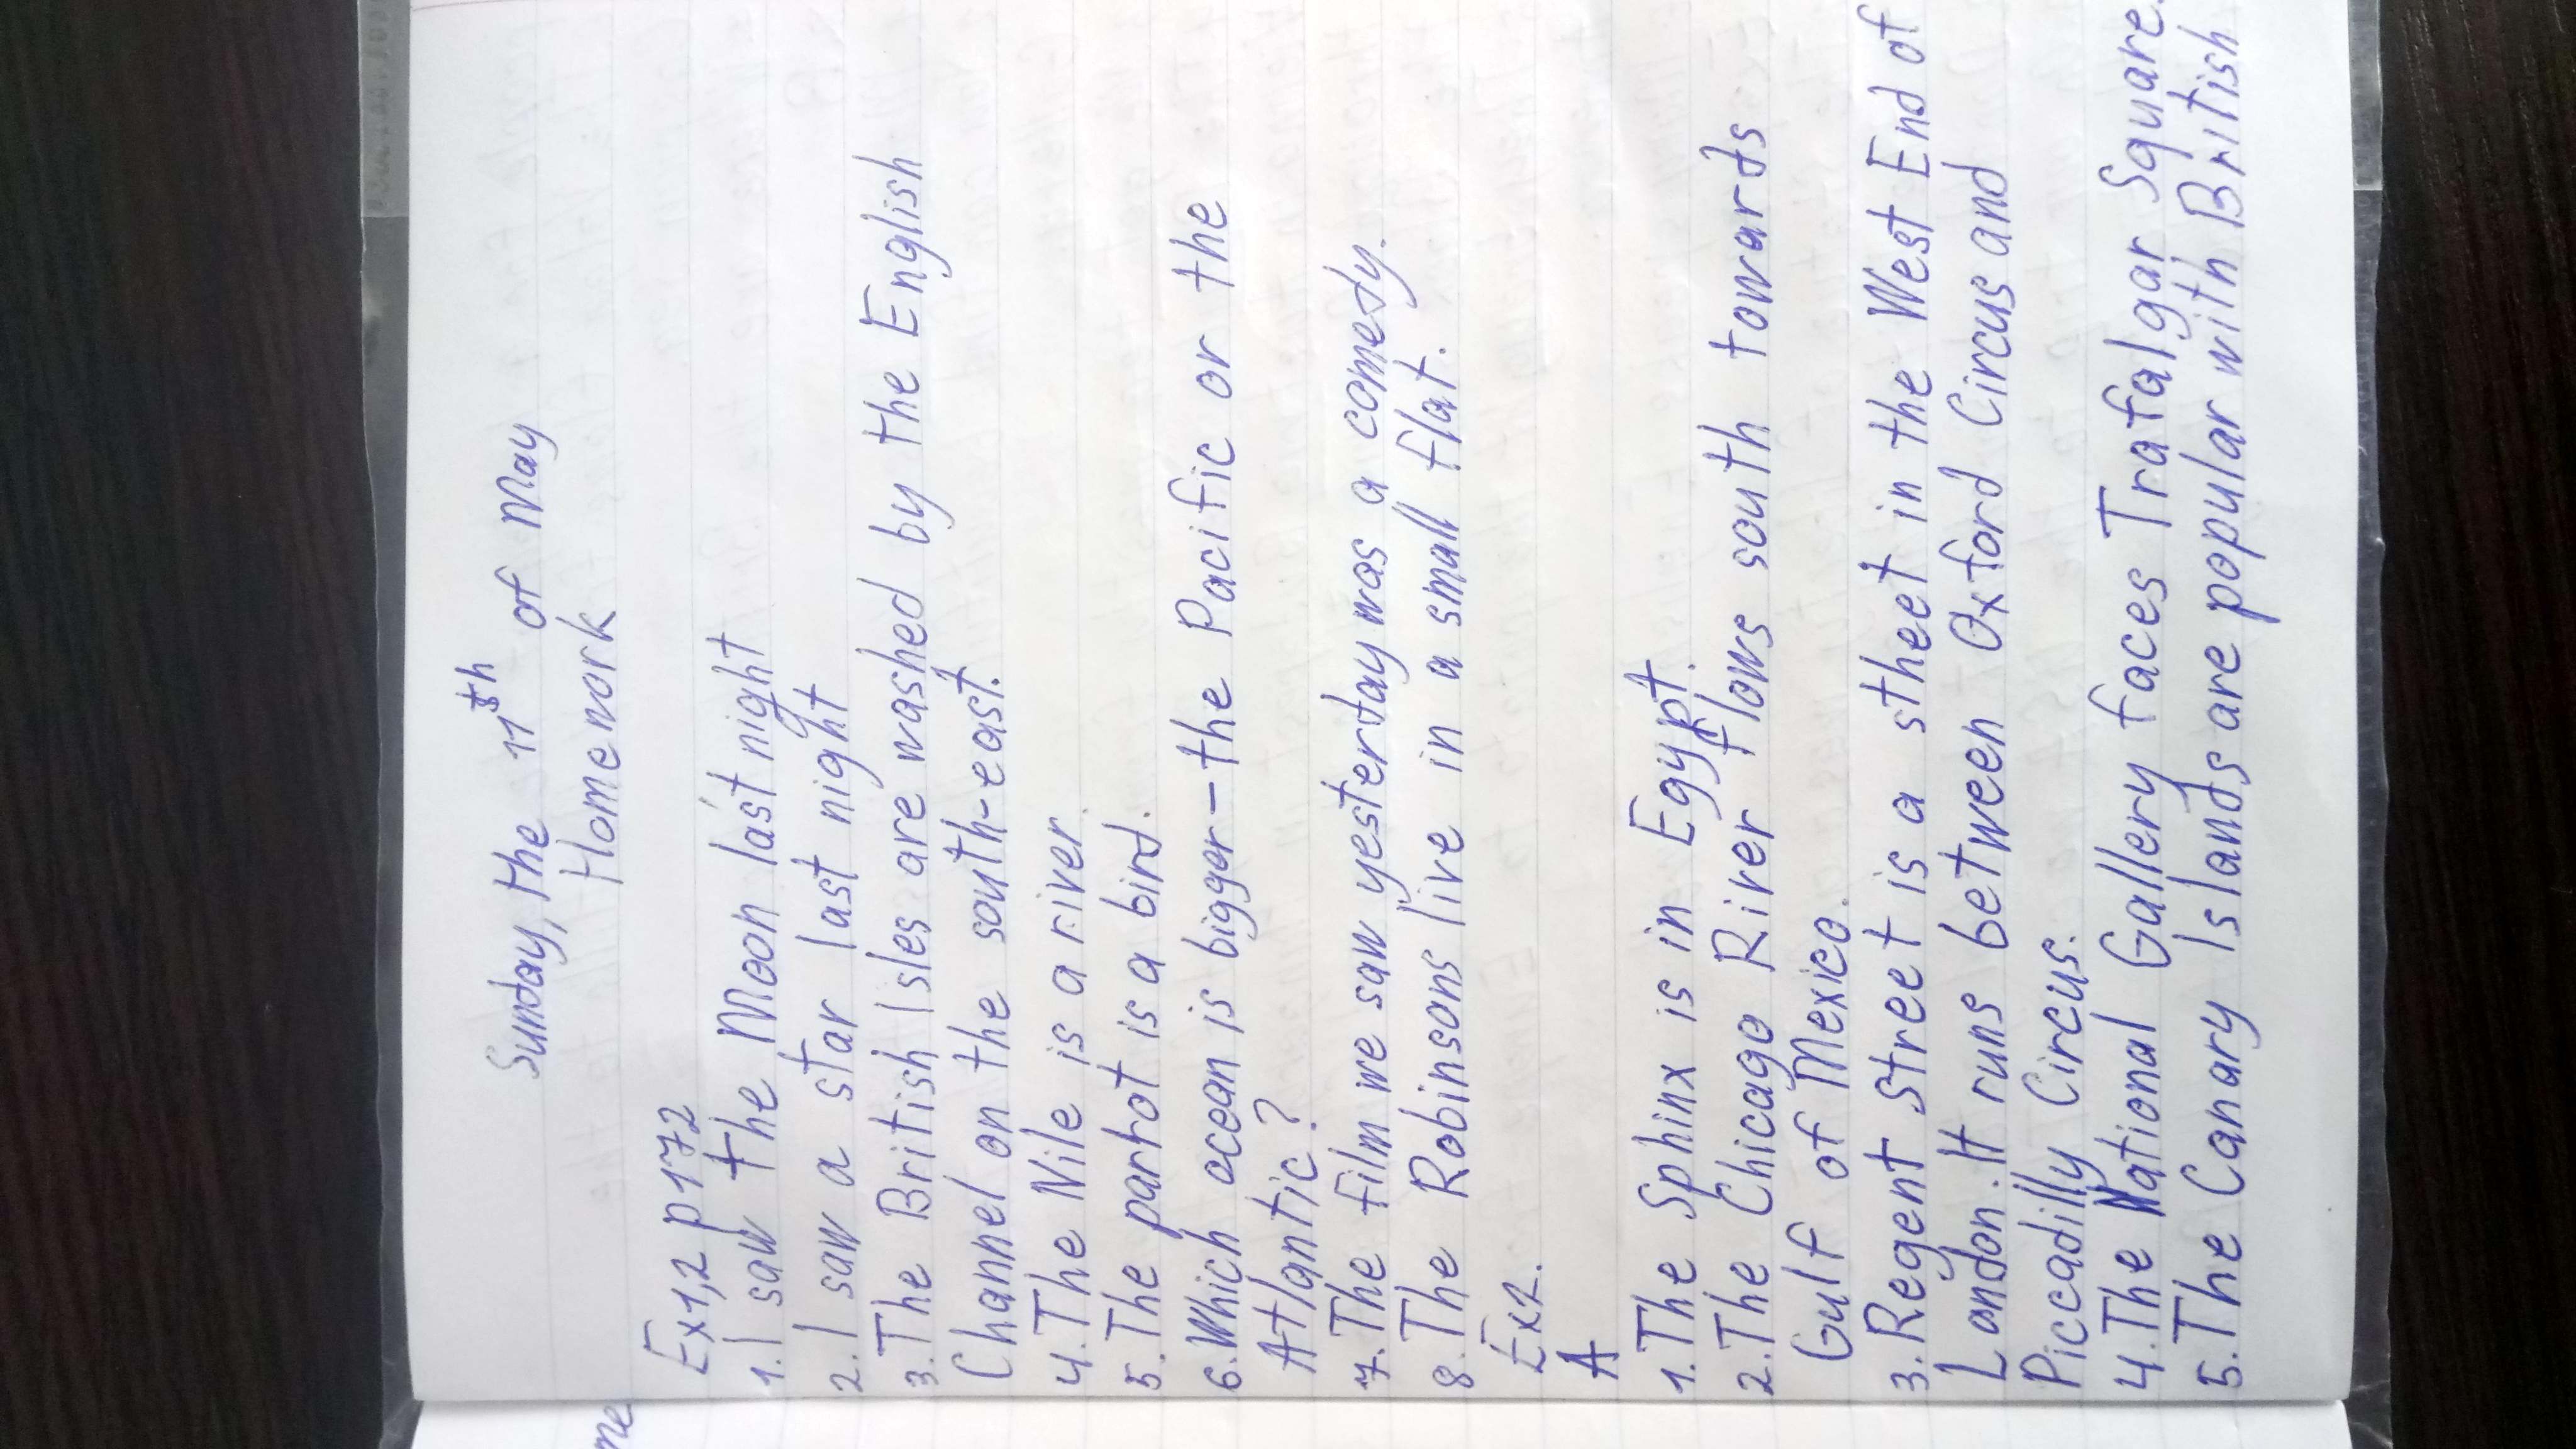 Sunday, the 11th of May
Homework
Ex1,2 p172
1. I saw the Moon last night
2. I saw a star last night
3. The British Isles are washed by the English
Channel on the south-east.
4. The Nile is a river.
5. The parrot is a bird.
6. Which ocean is bigger - the Pacific or the
Atlantic?
7. The film we saw yesterday was a comedy.
8. The Robinsons live in a small flat.
Ex2.
A
1. The Sphinx is in Egypt.
2. The Chicago River flows south towards
Gulf of Mexico.
3. Regent Street is a stheet in the West End of
London. It runs between Oxford Circus and
Piccadilly Circus.
4. The National Gallery faces Trafalgar Square.
5. The Canary Islands are popular with British
me